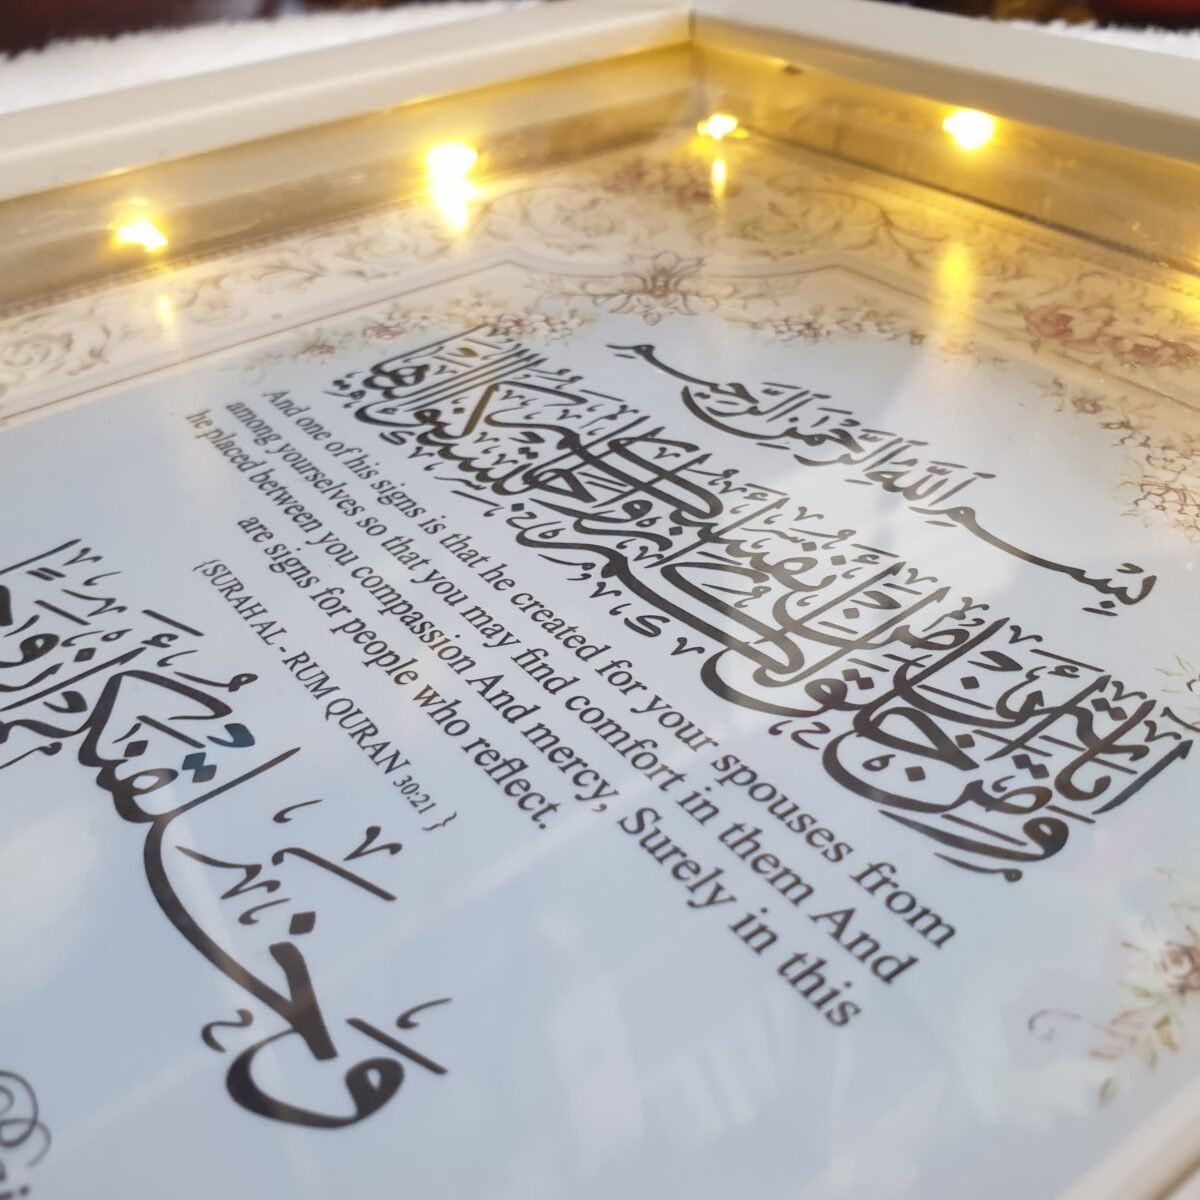 بِسْمِ اللَّهِ الرَّحْمَٰنِ الرَّحِيمِ
وَمِنْ آيَاتِهِ أَنْ خَلَقَ لَكُمْ مِنْ أَنْفُسِكُمْ أَزْوَاجًا لِتَسْكُنُوا إِلَيْهَا
And one of his signs is that he created for your spouses from
among yourselves so that you may find comfort in them And
he placed between you compassion And mercy, Surely in this
are signs for people who reflect.
{SURAH AL - RUM QURAN 30:21 }
وَخَلَقْنَاكُمْ أَزْوَاجًا